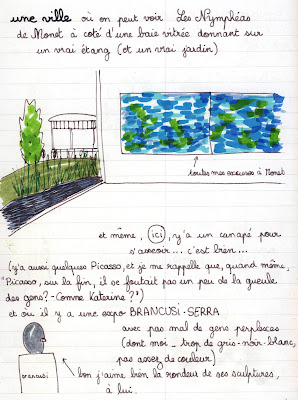 une ville où on peut voir Les Nymphéas
de Monet à coté d'une baie vitrée donnant sur
un vrai étang (et un vrai jardin)
toutes mes excuses à Monet
et même, ici, y'a un canapé pour
s'asseoir... c'est bien...
(y'a aussi quelques Picasso, et je me rappelle que, quand même,
"Picasso, sur la fin, il se foutait pas un peu de la gueule
des gens? - Comme Katerine?")
et où il y a une expo BRANCUSI-SERRA
avec pas mal de gens perplexes
(dont moi _ trop de gris-noir-blanc,
pas assez de couleur)
brancusi
bon j'aime bien la rondeur de ses sculptures,
à lui.